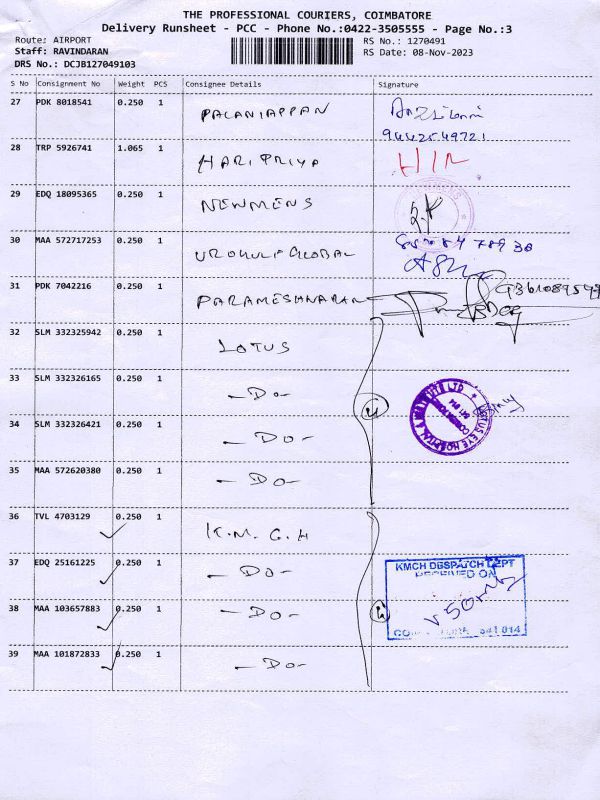 THE PROFESSIONAL COURIERS, COIMBATORE
Delivery Runsheet - PCC - Phone No.:0422-3505555 - Page No.:3
Route: AIRPORT RS No.: 1270491
Staff: RAVINDARAN RS Date: 08-Nov-2023
DRS No.: DCJB127049103
S No Consignment No Weight PCS Consignee Details Signature
27 PDK 8018541 0.250 1 PALANIAPPAN
9442549721
28 TRP 5926741 1.065 1 HARI PRIYA
29 EDQ 18095365 0.250 1 NEWMENS
30 MAA 572717253 0.250 1 GLOBAL
31 PDK 7042216 0.250 1 PARAMESHWARAN
32 SLM 332325942 0.250 1 LOTUS
33 SLM 332326165 0.250 1 -DO-
34 SLM 332326421 0.250 1 -DO-
35 MAA 572620380 0.250 1 -DO-
LOTUS EYE HOSPITAL & INSTITUTE LTD
36 TVL 4703129 0.250 1 K.M.C.H
37 EDQ 25161225 0.250 1 -DO-
KMCH DESPATCH DEPT
RECEIVED ON
38 MAA 103657883 0.250 1 -DO-
641 014
39 MAA 101872833 0.250 1 -DO-